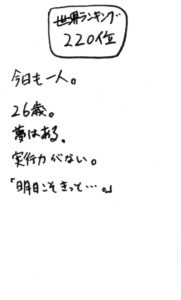 世界ランキング
220位
今日も一人。
26歳。
夢はある。
実行力がない。
「明日こそきっと…。」